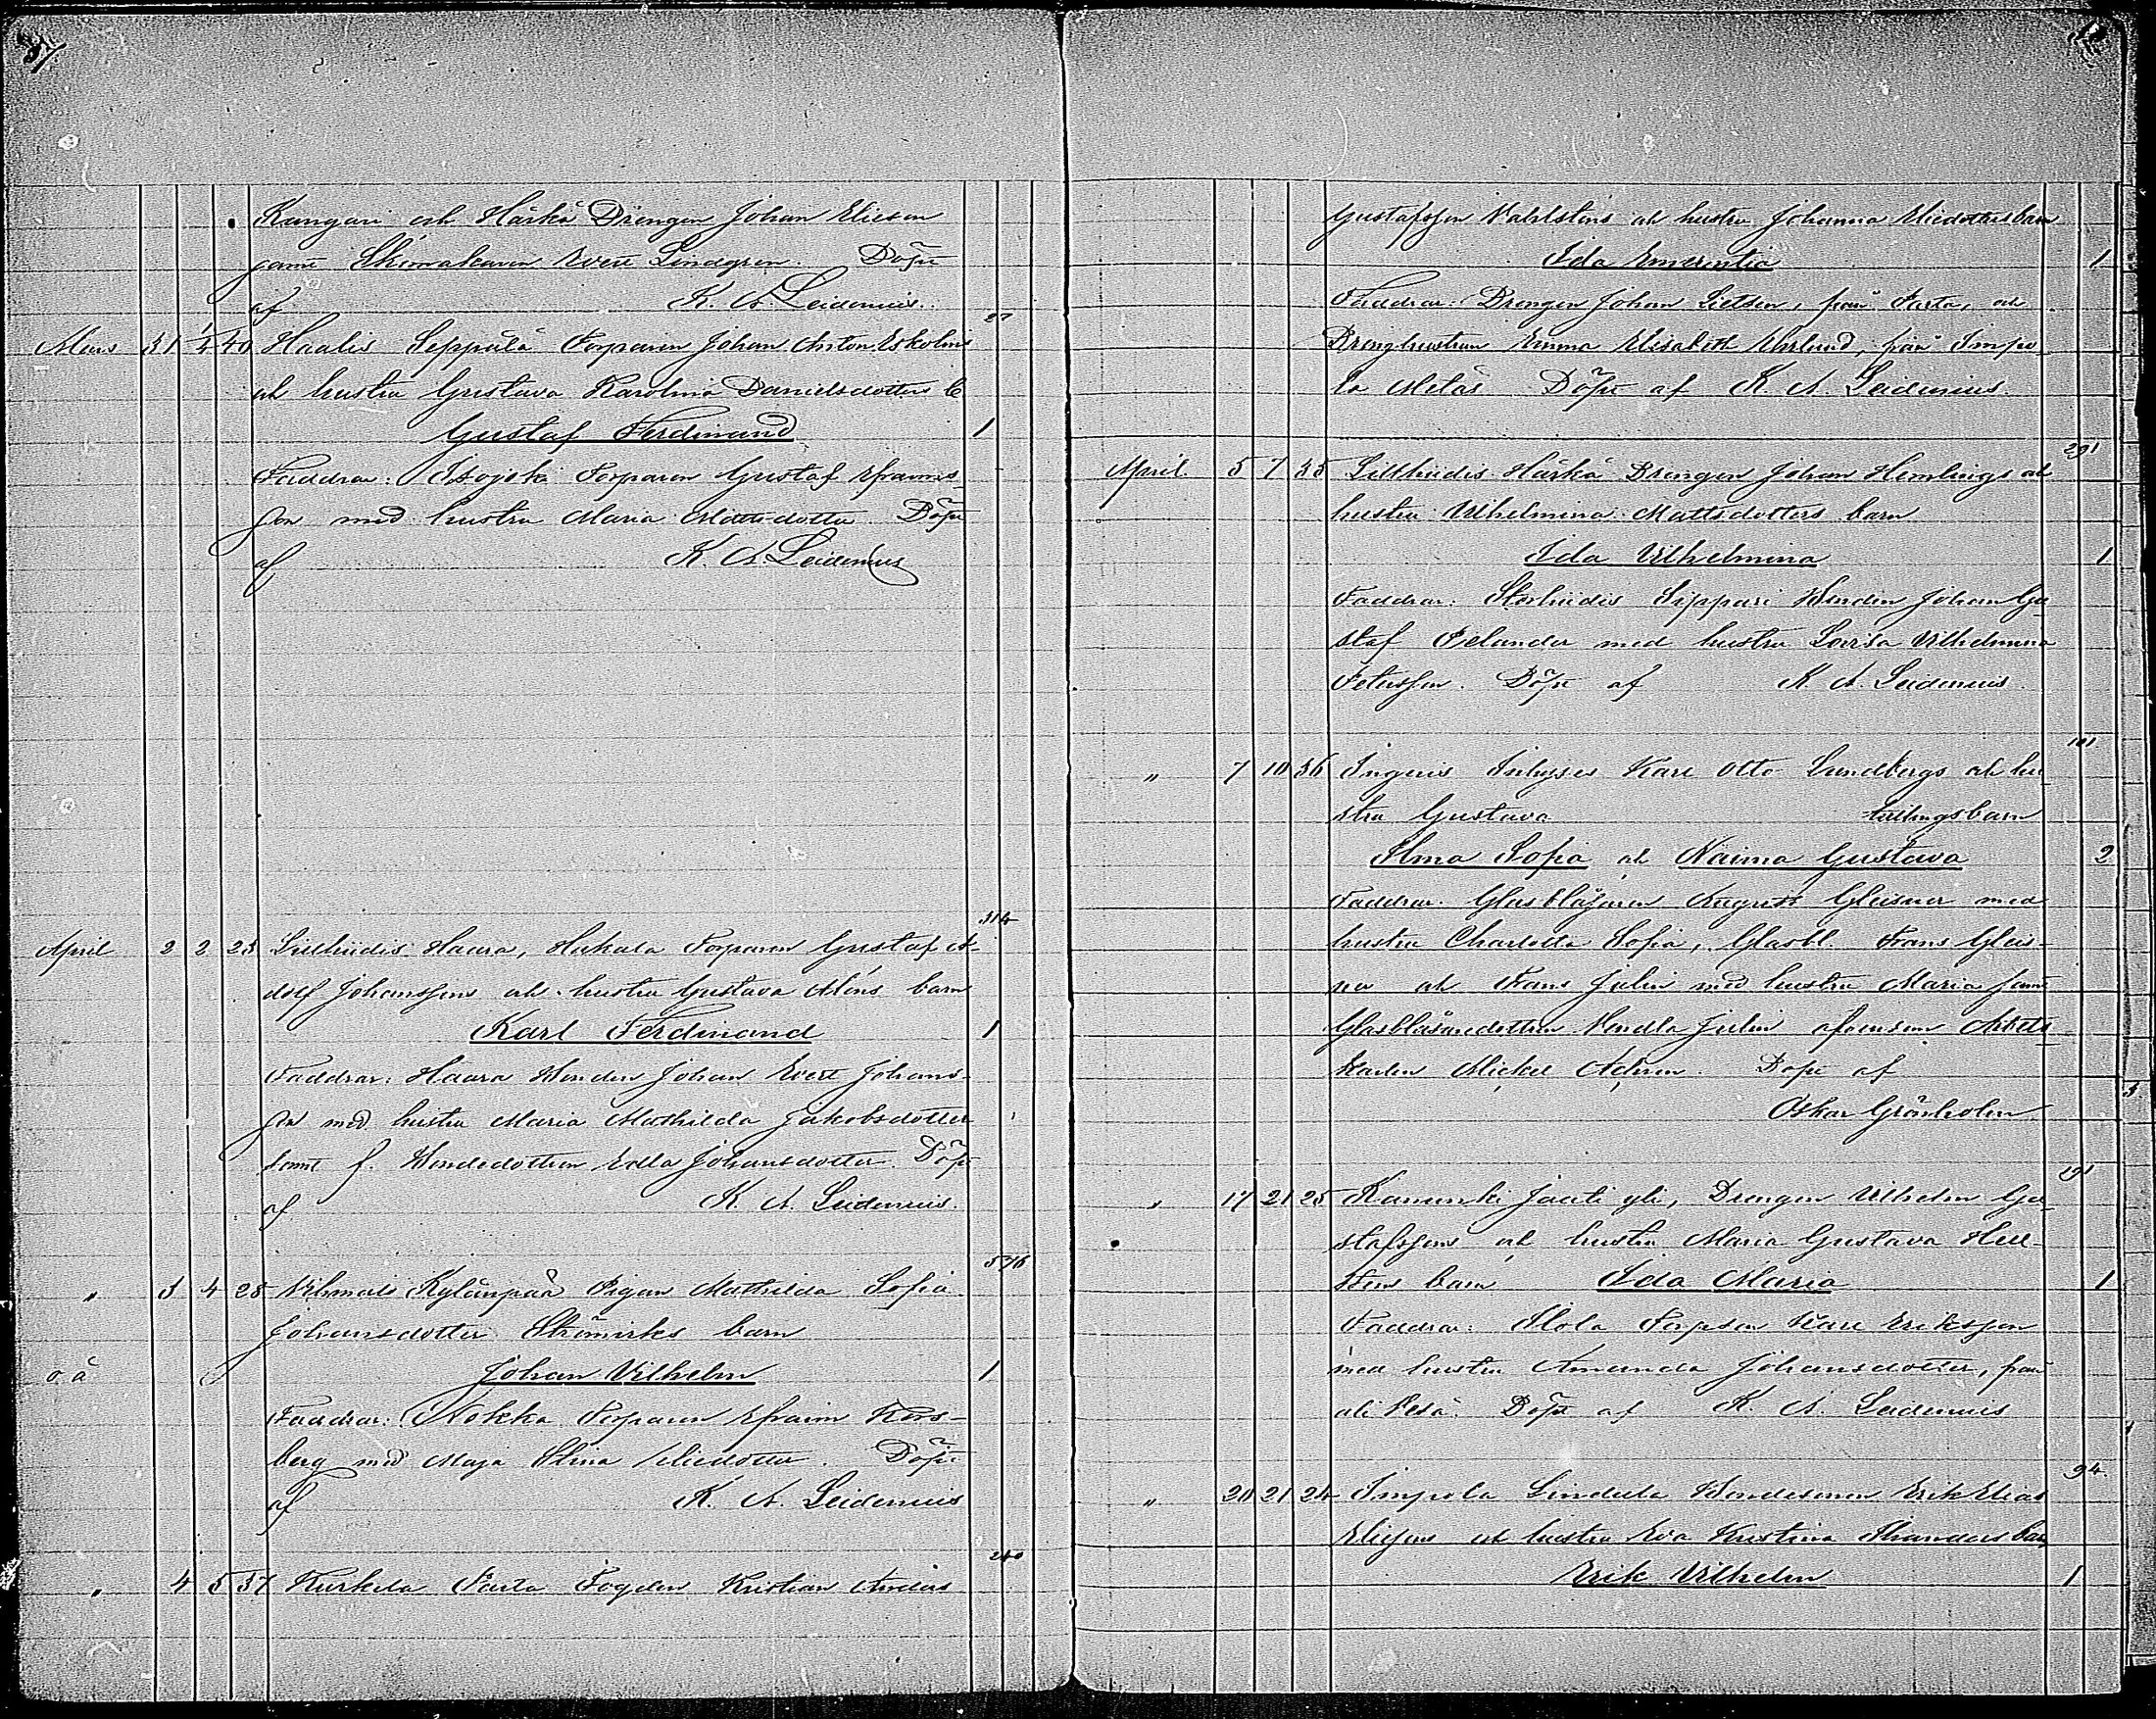 Kangari och Härkä Drengen Johan Elieson
samt Skomakaren Evert Lindgren. Döpt
af K. A. Leidenius.
27
Mars 31 1/4 40 Haalis Seppälä Torparen Johan Anton Eskolins
och hustru Gustava Karolina Danielsdotters b
Gustaf Ferdinand 1
Faddrar: Isojoki Torparen Gustaf Efraims
son med hustru Maria Mattsdotter Döpt
af K. A. Leidenius
314
April 2 2 23 Lillhiidis Haara, Hakala Torparen Gustaf A-
dolf Johanssons och hustru Gustava Aléns barn
Karl Ferdinand 1
Faddrar: Haara Bonden Johan Evert Johans-
son med hustru Maria Mathilda Jakobsdotter
samt f. Bondedottren Edla Johansdotter. Döpt
af K. A. Leidenius.
376
" 3 4 28 Vihmalo Kylänpää Pigan Mathilda Sofia
Johansdotter Strömirks barn
o ä Johan Vilhelm 1
Faddrar: Nokka Torparen Efraim Fors-
berg med Maja Stina Eliedotter. Döpt
af K. A. Leidenius
240
" 4 5 37 Kurkela Parta Fogden Kristian Anders
Gustafsson Vahlstens och hustru Johanna Eliedotters barn
Ida Emerentia 1
Faddrar: Drengen Johan Lietsen, från Parta, och
Drenghustrun Emma Elisabeth Ahrlund, från Impo
la Metäs Döpt af K. A. Leidenius.
291
April 5 7 35 Lillhiidis Härkä Drengen Johan Hemlings och
hustru Vilhelmina Mattsdotters barn
Ida Vilhelmina 1
Faddrar: Storhiidis Sippari Bonden Johan Gu-
staf Pelander med hustru Lovisa Vilhelmina
Petersson. Döpt af K. A. Leidenius.
101
" 7 10 36 Inguis Inhyses Karl Otto Lundbergs och hu
stru Gustava tvillingsbarn
Ilma Sofia och Naima Gustava 2
Faddrar. Glasblåsaren August Gleisner med
hustru Charlotta Sofia, Glasbl. Frans Gleis-
ner och Frans Julin med hustru Maria samt
Glasblåsaredottren Vendla Julin afvensom Arbets
karlen Mickel Achren. Döpt af
Oskar Grönholm
191
" 17 21 25 Kanunki Jaati yli, Drengen Vilhelm Gu
stafssons och hustru Maria Gustava Hell-
stens barn Ida Maria 1
Faddrar: Ilola Torparen Karl Eriksson
med hustru Amanda Johansdotter, från
ali Pesä. Döpt af K. A. Leidenius
94.
" 20 21 24 Impola Lindula Bondesonen Erik Elias
Eliesons och hustru Eva Kristina Thanders barn
Erik Vilhelm 1